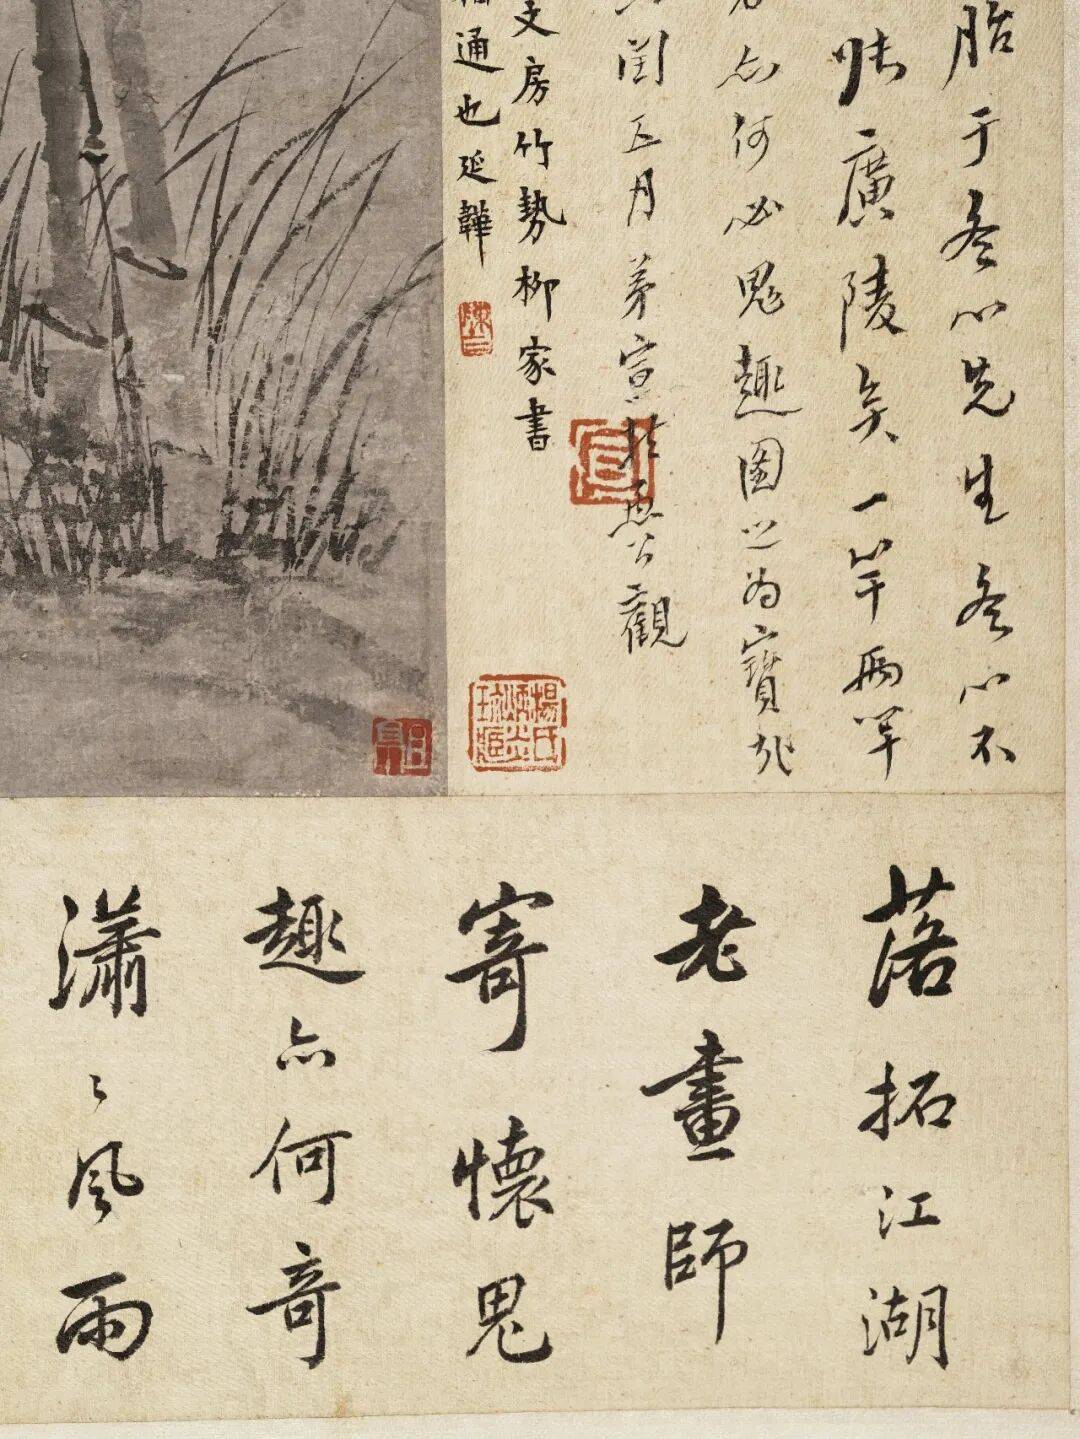 胎于冬心先生冬心不
廣陵矣一竿兩竿
亦何必鬼趣圖之為寶現
閏五月弟宣
觀
文房竹勢柳家書
通也延韡
落拓江湖
老畫師
寄懷鬼
趣亦何奇
瀟〻風雨